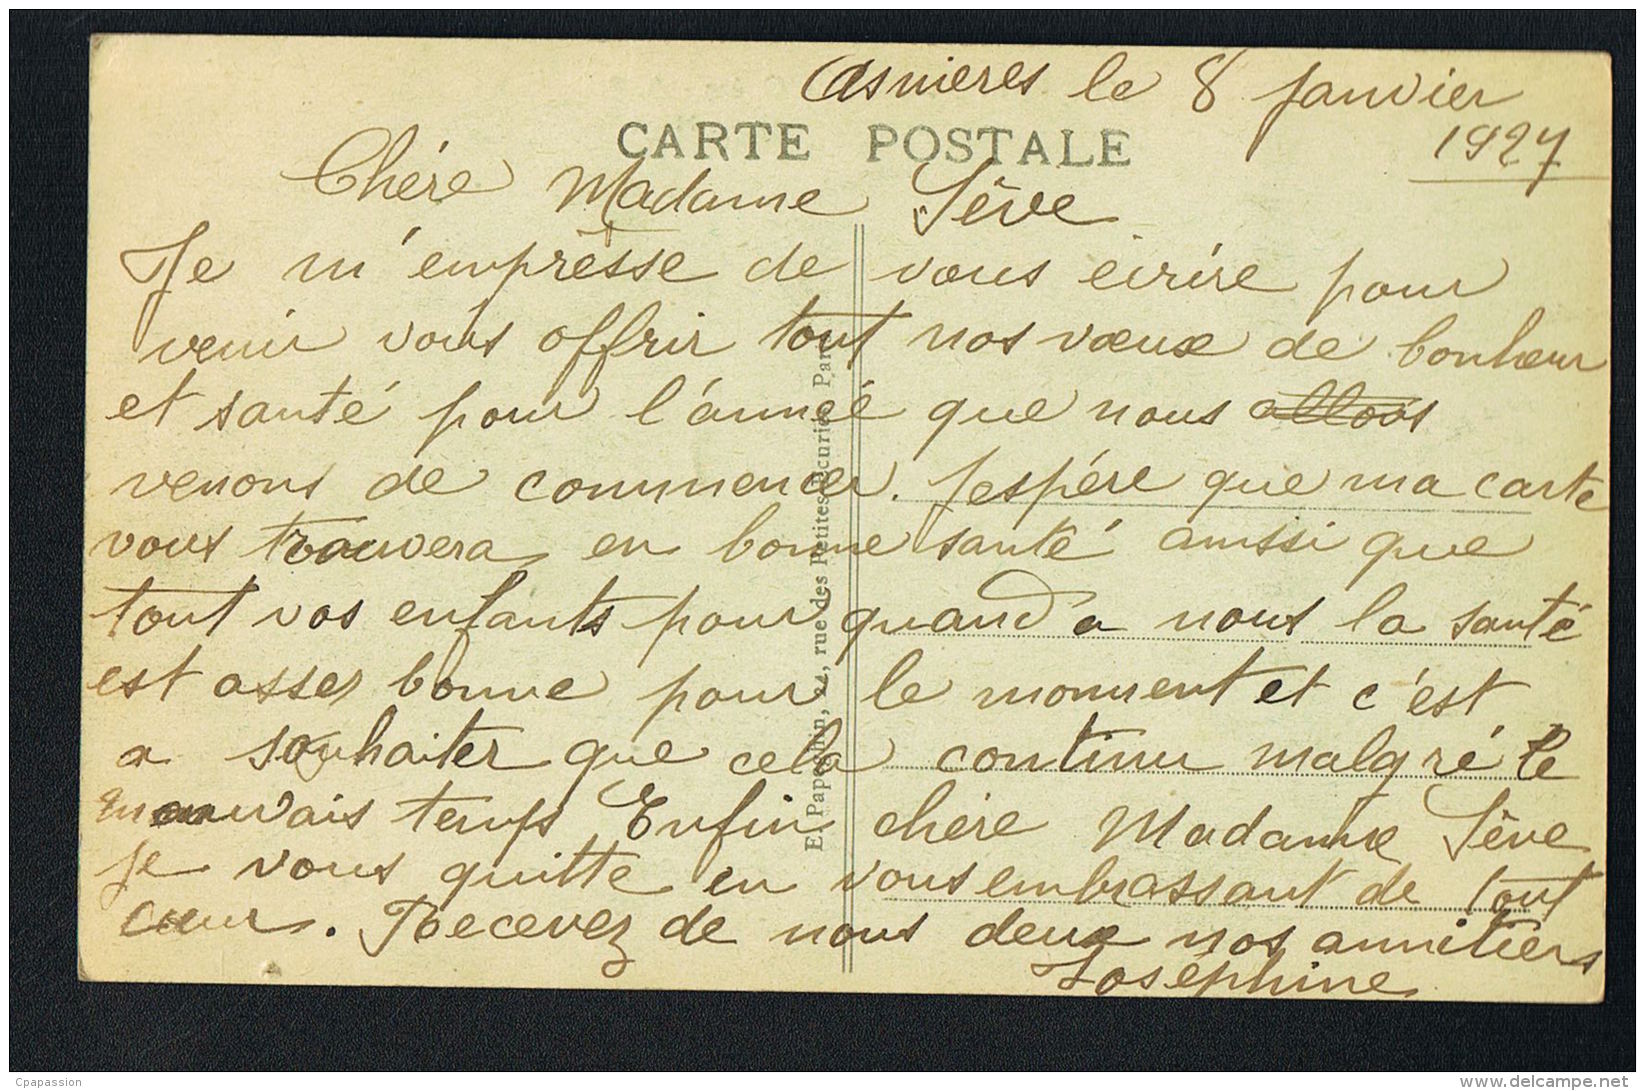 Asnieres le 8 Janvier
1927
CARTE POSTALE
Chére Madame Sève
Je m'empresse de vous écrire pour
venir vous offrir tout nos vœux de bonheur
et santé pour l'année que nous allons
venons de commencer. J'espére que ma carte
vous trouvera en bonne santé aussi que
tout vos enfants pour quand a nous la santé
est assez bonne pour le moment et c'est
a souhaiter que cela continu malgré le
mauvais temps Enfin chère Madame Sève
je vous quitte en vous embrassant de tout
cœur. Recevez de nous deux nos amitiers
Joséphine
E. Papeghin, 24, rue des Petites-Ecuries Paris
Cpapassion
www.delcampe.net